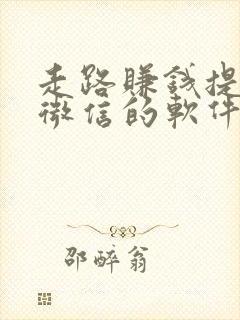 走路賺錢提
微信的軟件
邵醉翁